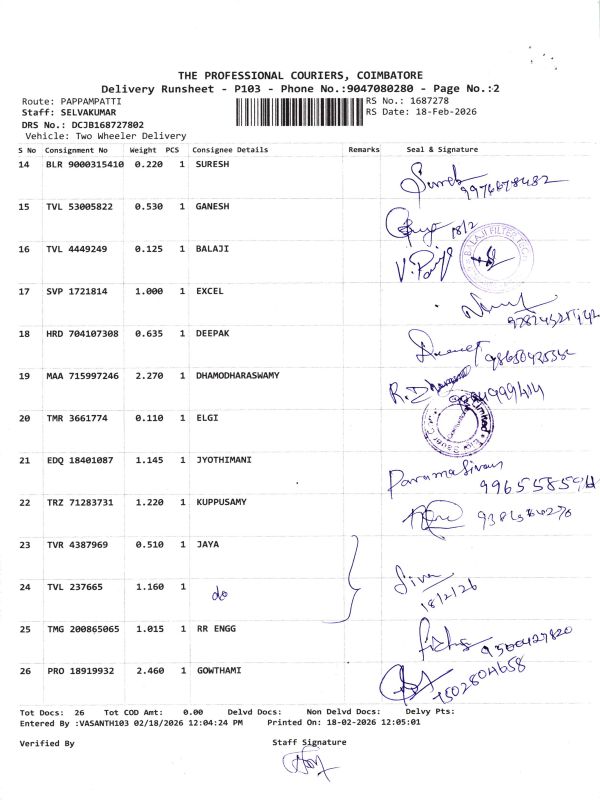 THE PROFESSIONAL COURIERS, COIMBATORE
Delivery Runsheet - P103 - Phone No.:9047080280 - Page No.:2
Route: PAPPAMPATTI RS No.: 1687278
Staff: SELVAKUMAR RS Date: 18-Feb-2026
DRS No.: DCJB168727802
Vehicle: Two Wheeler Delivery
S No Consignment No Weight PCS Consignee Details Remarks Seal & Signature
14 BLR 9000315410 0.220 1 SURESH
15 TVL 53005822 0.530 1 GANESH 18/2
16 TVL 4449249 0.125 1 BALAJI
17 SVP 1721814 1.000 1 EXCEL
18 HRD 704107308 0.635 1 DEEPAK
19 MAA 715997246 2.270 1 DHAMODHARASWAMY
20 TMR 3661774 0.110 1 ELGI
21 EDQ 18401087 1.145 1 JYOTHIMANI Paramasivan
22 TRZ 71283731 1.220 1 KUPPUSAMY
23 TVR 4387969 0.510 1 JAYA
24 TVL 237665 1.160 1 do Siva
18/2/26
25 TMG 200865065 1.015 1 RR ENGG 9500427820
26 PRO 18919932 2.460 1 GOWTHAMI 7502804658
Tot Docs: 26 Tot COD Amt: 0.00 Delvd Docs: Non Delvd Docs: Delvy Pts:
Entered By :VASANTH103 02/18/2026 12:04:24 PM Printed On: 18-02-2026 12:05:01
Verified By Staff Signature